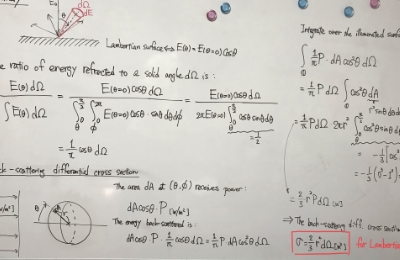 E₀ dΩ
θ dE
Lambertian surface ⇔ E(θ) = E(θ=0) cosθ
e ratio of energy refracted to a solid angle dΩ is :
E(θ) dΩ / ∫ E(θ) dΩ = E(θ=0) cosθ dΩ / ∫ ∫ E(θ=0) cosθ · sinθ dθ dϕ = E(θ=0) cosθ dΩ / 2π E(θ=0) ∫ cosθ sinθ dθ
= 1/2
= 1/π cosθ dΩ
ck-scattering differential cross section
The area dA at (θ, ϕ) receives power :
dA cosθ · P [W/m²]
The energy back-scattered is :
dA cosθ · P · 1/π cosθ dΩ = 1/π P · dA cos²θ dΩ
Integrate over the illuminated surf
∫ 1/π P · dA cos²θ dΩ
= 1/π P · dΩ ∫ cos²θ dA
r² sinθ dθ
= 1/π P dΩ · 2π r² ∫ cos²θ sinθ d
= 2/3 r² P dΩ [W]
⇒ The back-scattering diff. cross sectio
σ = 2/3 r² dΩ [m²] for Lambertian